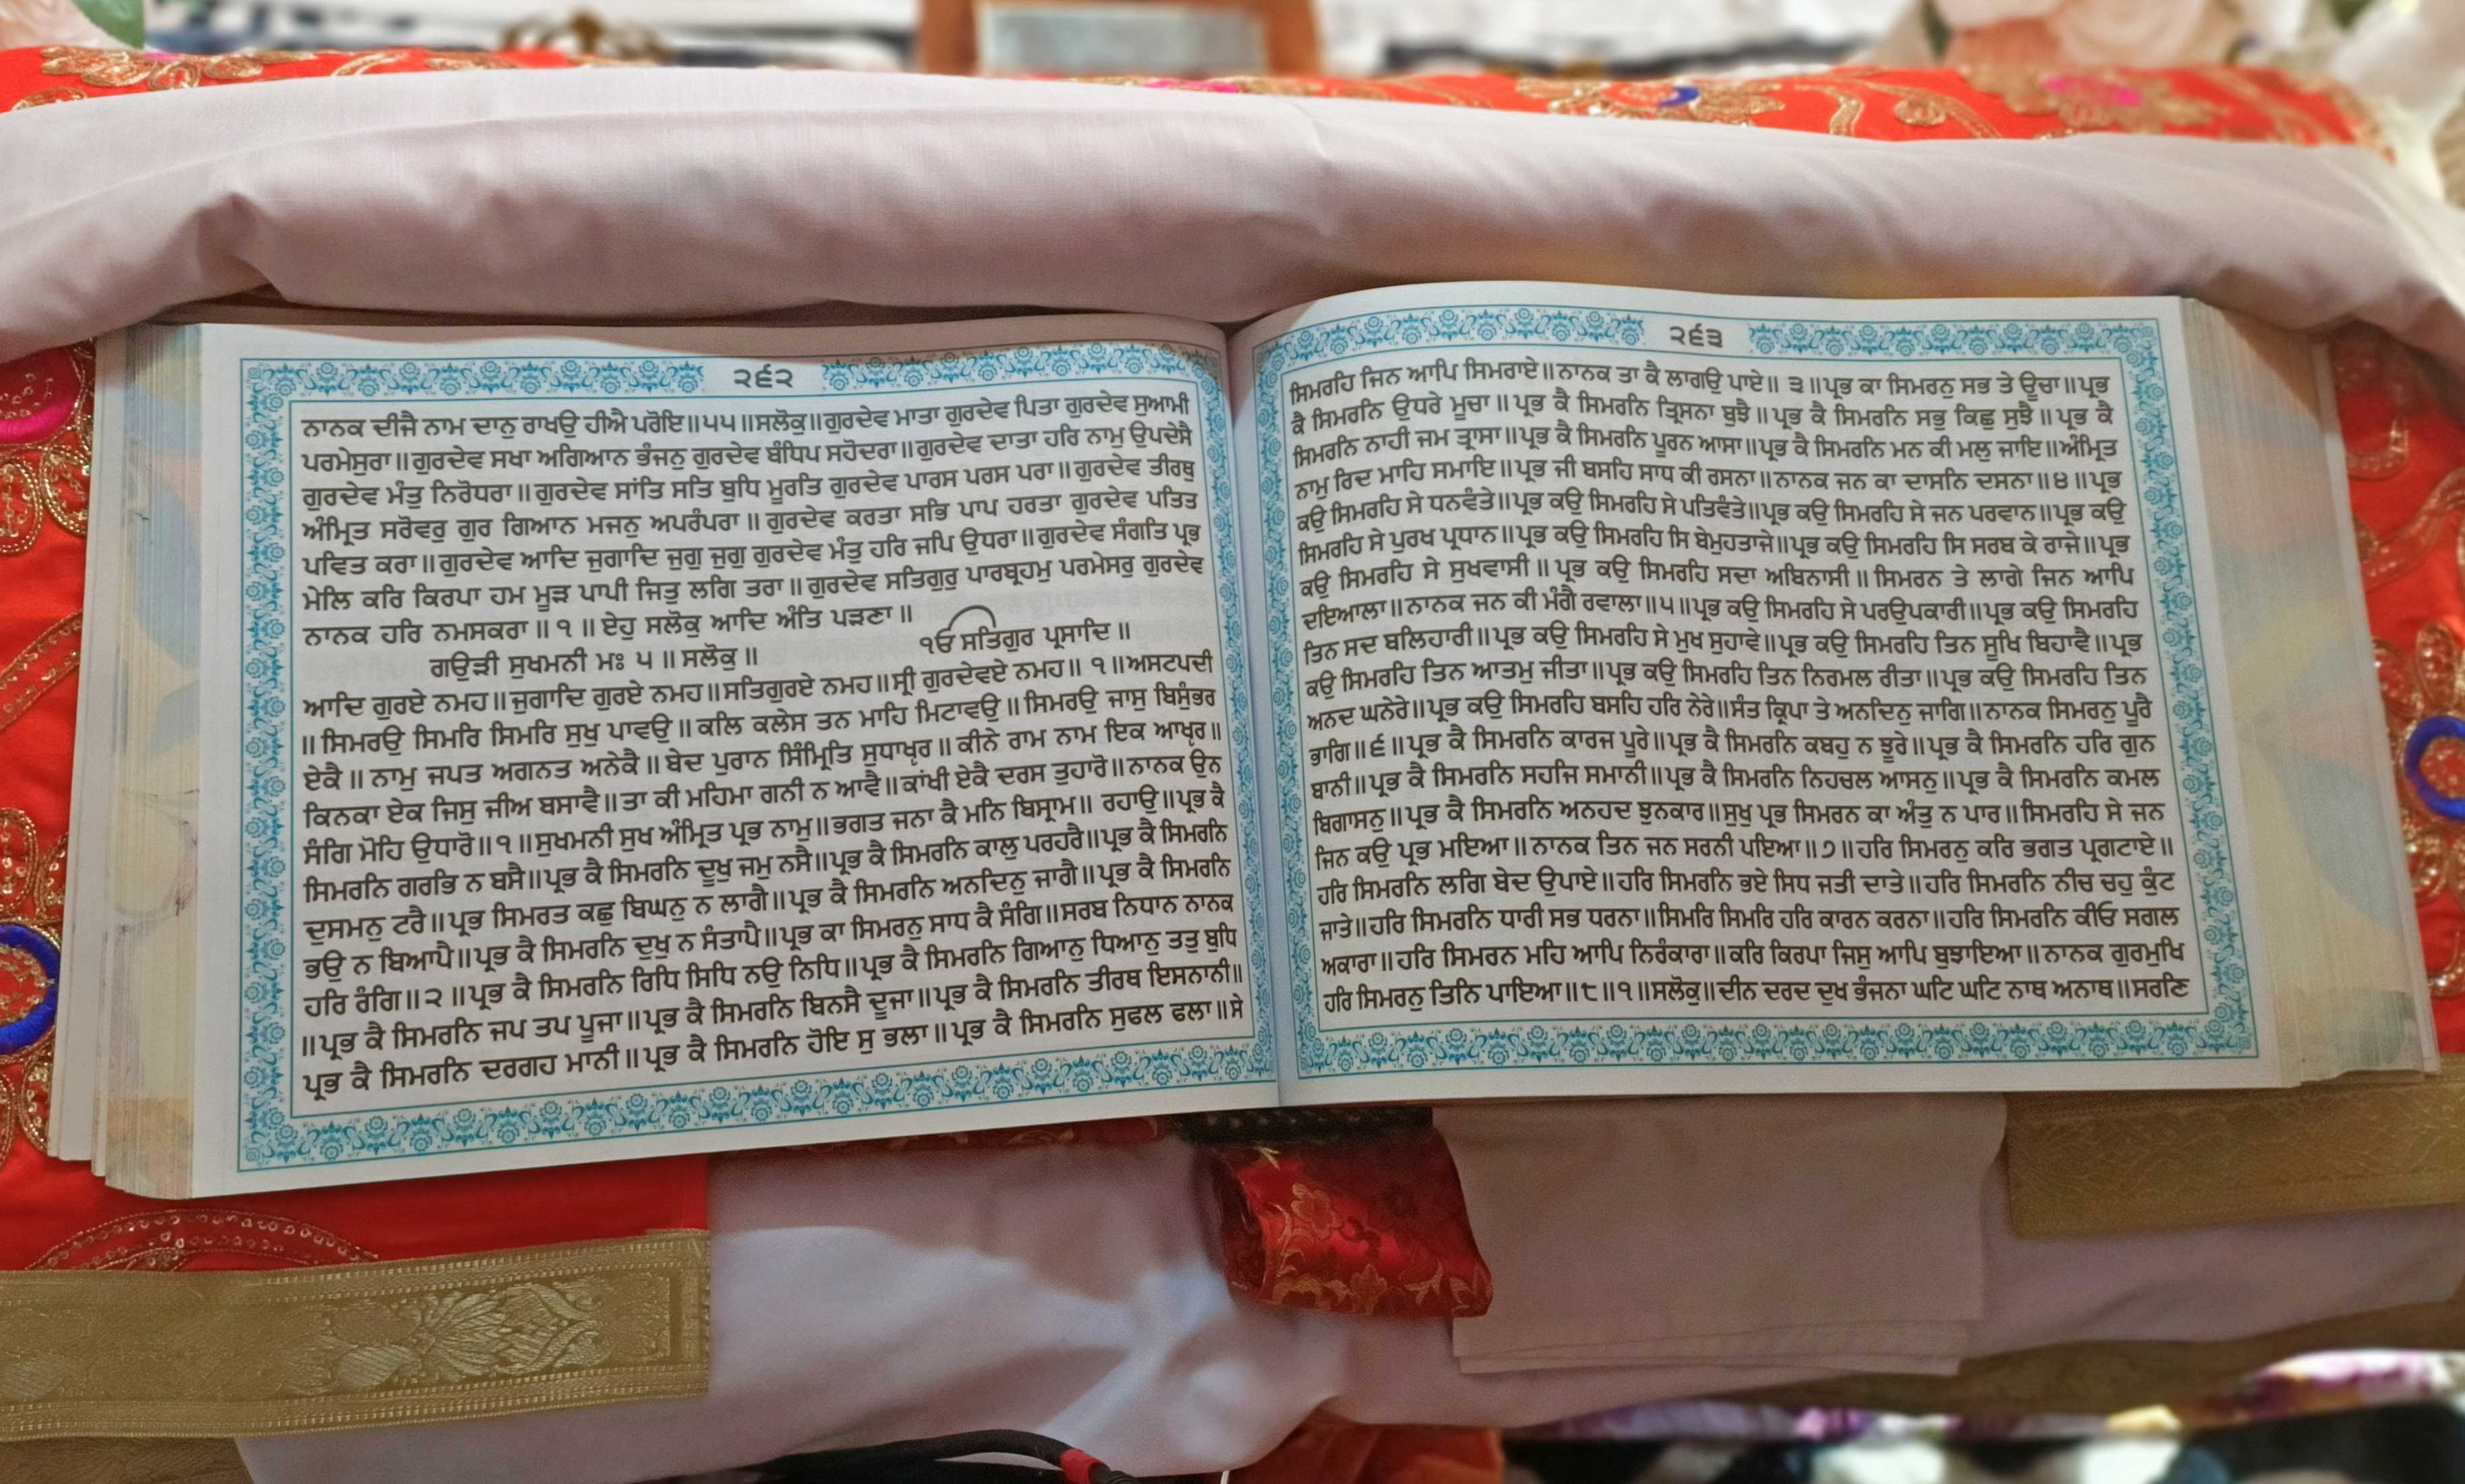 ੨੬੨
ਨਾਨਕ ਦੀਜੈ ਨਾਮ ਦਾਨੁ ਰਾਖਉ ਹੀਐ ਪਰੋਇ॥੫੫॥ਸਲੋਕੁ॥ਗੁਰਦੇਵ ਮਾਤਾ ਗੁਰਦੇਵ ਪਿਤਾ ਗੁਰਦੇਵ ਸੁਆਮੀ
ਪਰਮੇਸੁਰਾ॥ਗੁਰਦੇਵ ਸਖਾ ਅਗਿਆਨ ਭੰਜਨੁ ਗੁਰਦੇਵ ਬੰਧਿਪ ਸਹੋਦਰਾ॥ਗੁਰਦੇਵ ਦਾਤਾ ਹਰਿ ਨਾਮੁ ਉਪਦੇਸੈ
ਗੁਰਦੇਵ ਮੰਤੁ ਨਿਰੋਧਰਾ॥ਗੁਰਦੇਵ ਸਾਂਤਿ ਸਤਿ ਬੁਧਿ ਮੂਰਤਿ ਗੁਰਦੇਵ ਪਾਰਸ ਪਰਸ ਪਰਾ॥ਗੁਰਦੇਵ ਤੀਰਥੁ
ਅੰਮ੍ਰਿਤ ਸਰੋਵਰੁ ਗੁਰ ਗਿਆਨ ਮਜਨੁ ਅਪਰੰਪਰਾ॥ਗੁਰਦੇਵ ਕਰਤਾ ਸਭਿ ਪਾਪ ਹਰਤਾ ਗੁਰਦੇਵ ਪਤਿਤ
ਪਵਿਤ ਕਰਾ॥ਗੁਰਦੇਵ ਆਦਿ ਜੁਗਾਦਿ ਜੁਗੁ ਜੁਗੁ ਗੁਰਦੇਵ ਮੰਤੁ ਹਰਿ ਜਪਿ ਉਧਰਾ॥ਗੁਰਦੇਵ ਸੰਗਤਿ ਪ੍ਰਭ
ਮੇਲਿ ਕਰਿ ਕਿਰਪਾ ਹਮ ਮੂੜ ਪਾਪੀ ਜਿਤੁ ਲਗਿ ਤਰਾ॥ਗੁਰਦੇਵ ਸਤਿਗੁਰੁ ਪਾਰਬ੍ਰਹਮੁ ਪਰਮੇਸਰੁ ਗੁਰਦੇਵ
ਨਾਨਕ ਹਰਿ ਨਮਸਕਰਾ॥੧॥ਏਹੁ ਸਲੋਕੁ ਆਦਿ ਅੰਤਿ ਪੜਣਾ॥
ਗਉੜੀ ਸੁਖਮਨੀ ਮਃ ੫॥ਸਲੋਕੁ॥ ੴ ਸਤਿਗੁਰ ਪ੍ਰਸਾਦਿ॥
ਆਦਿ ਗੁਰਏ ਨਮਹ॥ਜੁਗਾਦਿ ਗੁਰਏ ਨਮਹ॥ਸਤਿਗੁਰਏ ਨਮਹ॥ਸ੍ਰੀ ਗੁਰਦੇਵਏ ਨਮਹ॥੧॥ਅਸਟਪਦੀ
॥ਸਿਮਰਉ ਸਿਮਰਿ ਸਿਮਰਿ ਸੁਖੁ ਪਾਵਉ॥ਕਲਿ ਕਲੇਸ ਤਨ ਮਾਹਿ ਮਿਟਾਵਉ॥ਸਿਮਰਉ ਜਾਸੁ ਬਿਸੁੰਭਰ
ਏਕੈ॥ਨਾਮੁ ਜਪਤ ਅਗਨਤ ਅਨੇਕੈ॥ਬੇਦ ਪੁਰਾਨ ਸਿੰਮ੍ਰਿਤਿ ਸੁਧਾਖੵਰ॥ਕੀਨੇ ਰਾਮ ਨਾਮ ਇਕ ਆਖੵਰ॥
ਕਿਨਕਾ ਏਕ ਜਿਸੁ ਜੀਅ ਬਸਾਵੈ॥ਤਾ ਕੀ ਮਹਿਮਾ ਗਨੀ ਨ ਆਵੈ॥ਕਾਂਖੀ ਏਕੈ ਦਰਸ ਤੁਹਾਰੋ॥ਨਾਨਕ ਉਨ
ਸੰਗਿ ਮੋਹਿ ਉਧਾਰੋ॥੧॥ਸੁਖਮਨੀ ਸੁਖ ਅੰਮ੍ਰਿਤ ਪ੍ਰਭ ਨਾਮੁ॥ਭਗਤ ਜਨਾ ਕੈ ਮਨਿ ਬਿਸ੍ਰਾਮ॥ਰਹਾਉ॥ਪ੍ਰਭ ਕੈ
ਸਿਮਰਨਿ ਗਰਭਿ ਨ ਬਸੈ॥ਪ੍ਰਭ ਕੈ ਸਿਮਰਨਿ ਦੂਖੁ ਜਮੁ ਨਸੈ॥ਪ੍ਰਭ ਕੈ ਸਿਮਰਨਿ ਕਾਲੁ ਪਰਹਰੈ॥ਪ੍ਰਭ ਕੈ ਸਿਮਰਨਿ
ਦੁਸਮਨੁ ਟਰੈ॥ਪ੍ਰਭ ਸਿਮਰਤ ਕਛੁ ਬਿਘਨੁ ਨ ਲਾਗੈ॥ਪ੍ਰਭ ਕੈ ਸਿਮਰਨਿ ਅਨਦਿਨੁ ਜਾਗੈ॥ਪ੍ਰਭ ਕੈ ਸਿਮਰਨਿ
ਭਉ ਨ ਬਿਆਪੈ॥ਪ੍ਰਭ ਕੈ ਸਿਮਰਨਿ ਦੁਖੁ ਨ ਸੰਤਾਪੈ॥ਪ੍ਰਭ ਕਾ ਸਿਮਰਨੁ ਸਾਧ ਕੈ ਸੰਗਿ॥ਸਰਬ ਨਿਧਾਨ ਨਾਨਕ
ਹਰਿ ਰੰਗਿ॥੨॥ਪ੍ਰਭ ਕੈ ਸਿਮਰਨਿ ਰਿਧਿ ਸਿਧਿ ਨਉ ਨਿਧਿ॥ਪ੍ਰਭ ਕੈ ਸਿਮਰਨਿ ਗਿਆਨੁ ਧਿਆਨੁ ਤਤੁ ਬੁਧਿ
॥ਪ੍ਰਭ ਕੈ ਸਿਮਰਨਿ ਜਪ ਤਪ ਪੂਜਾ॥ਪ੍ਰਭ ਕੈ ਸਿਮਰਨਿ ਬਿਨਸੈ ਦੂਜਾ॥ਪ੍ਰਭ ਕੈ ਸਿਮਰਨਿ ਤੀਰਥ ਇਸਨਾਨੀ॥
ਪ੍ਰਭ ਕੈ ਸਿਮਰਨਿ ਦਰਗਹ ਮਾਨੀ॥ਪ੍ਰਭ ਕੈ ਸਿਮਰਨਿ ਹੋਇ ਸੁ ਭਲਾ॥ਪ੍ਰਭ ਕੈ ਸਿਮਰਨਿ ਸੁਫਲ ਫਲਾ॥ਸੇ
੨੬੩
ਸਿਮਰਹਿ ਜਿਨ ਆਪਿ ਸਿਮਰਾਏ॥ਨਾਨਕ ਤਾ ਕੈ ਲਾਗਉ ਪਾਏ॥੩॥ਪ੍ਰਭ ਕਾ ਸਿਮਰਨੁ ਸਭ ਤੇ ਊਚਾ॥ਪ੍ਰਭ
ਕੈ ਸਿਮਰਨਿ ਉਧਰੇ ਮੂਚਾ॥ਪ੍ਰਭ ਕੈ ਸਿਮਰਨਿ ਤ੍ਰਿਸਨਾ ਬੁਝੈ॥ਪ੍ਰਭ ਕੈ ਸਿਮਰਨਿ ਸਭੁ ਕਿਛੁ ਸੁਝੈ॥ਪ੍ਰਭ ਕੈ
ਸਿਮਰਨਿ ਨਾਹੀ ਜਮ ਤ੍ਰਾਸਾ॥ਪ੍ਰਭ ਕੈ ਸਿਮਰਨਿ ਪੂਰਨ ਆਸਾ॥ਪ੍ਰਭ ਕੈ ਸਿਮਰਨਿ ਮਨ ਕੀ ਮਲੁ ਜਾਇ॥ਅੰਮ੍ਰਿਤ
ਨਾਮੁ ਰਿਦ ਮਾਹਿ ਸਮਾਇ॥ਪ੍ਰਭ ਜੀ ਬਸਹਿ ਸਾਧ ਕੀ ਰਸਨਾ॥ਨਾਨਕ ਜਨ ਕਾ ਦਾਸਨਿ ਦਸਨਾ॥੪॥ਪ੍ਰਭ
ਕਉ ਸਿਮਰਹਿ ਸੇ ਧਨਵੰਤੇ॥ਪ੍ਰਭ ਕਉ ਸਿਮਰਹਿ ਸੇ ਪਤਿਵੰਤੇ॥ਪ੍ਰਭ ਕਉ ਸਿਮਰਹਿ ਸੇ ਜਨ ਪਰਵਾਨ॥ਪ੍ਰਭ ਕਉ
ਸਿਮਰਹਿ ਸੇ ਪੁਰਖ ਪ੍ਰਧਾਨ॥ਪ੍ਰਭ ਕਉ ਸਿਮਰਹਿ ਸਿ ਬੇਮੁਹਤਾਜੇ॥ਪ੍ਰਭ ਕਉ ਸਿਮਰਹਿ ਸਿ ਸਰਬ ਕੇ ਰਾਜੇ॥ਪ੍ਰਭ
ਕਉ ਸਿਮਰਹਿ ਸੇ ਸੁਖਵਾਸੀ॥ਪ੍ਰਭ ਕਉ ਸਿਮਰਹਿ ਸਦਾ ਅਬਿਨਾਸੀ॥ਸਿਮਰਨ ਤੇ ਲਾਗੇ ਜਿਨ ਆਪਿ
ਦਇਆਲਾ॥ਨਾਨਕ ਜਨ ਕੀ ਮੰਗੈ ਰਵਾਲਾ॥੫॥ਪ੍ਰਭ ਕਉ ਸਿਮਰਹਿ ਸੇ ਪਰਉਪਕਾਰੀ॥ਪ੍ਰਭ ਕਉ ਸਿਮਰਹਿ
ਤਿਨ ਸਦ ਬਲਿਹਾਰੀ॥ਪ੍ਰਭ ਕਉ ਸਿਮਰਹਿ ਸੇ ਮੁਖ ਸੁਹਾਵੇ॥ਪ੍ਰਭ ਕਉ ਸਿਮਰਹਿ ਤਿਨ ਸੂਖਿ ਬਿਹਾਵੈ॥ਪ੍ਰਭ
ਕਉ ਸਿਮਰਹਿ ਤਿਨ ਆਤਮੁ ਜੀਤਾ॥ਪ੍ਰਭ ਕਉ ਸਿਮਰਹਿ ਤਿਨ ਨਿਰਮਲ ਰੀਤਾ॥ਪ੍ਰਭ ਕਉ ਸਿਮਰਹਿ ਤਿਨ
ਅਨਦ ਘਨੇਰੇ॥ਪ੍ਰਭ ਕਉ ਸਿਮਰਹਿ ਬਸਹਿ ਹਰਿ ਨੇਰੇ॥ਸੰਤ ਕ੍ਰਿਪਾ ਤੇ ਅਨਦਿਨੁ ਜਾਗਿ॥ਨਾਨਕ ਸਿਮਰਨੁ ਪੂਰੈ
ਭਾਗਿ॥੬॥ਪ੍ਰਭ ਕੈ ਸਿਮਰਨਿ ਕਾਰਜ ਪੂਰੇ॥ਪ੍ਰਭ ਕੈ ਸਿਮਰਨਿ ਕਬਹੁ ਨ ਝੂਰੇ॥ਪ੍ਰਭ ਕੈ ਸਿਮਰਨਿ ਹਰਿ ਗੁਨ
ਬਾਨੀ॥ਪ੍ਰਭ ਕੈ ਸਿਮਰਨਿ ਸਹਜਿ ਸਮਾਨੀ॥ਪ੍ਰਭ ਕੈ ਸਿਮਰਨਿ ਨਿਹਚਲ ਆਸਨੁ॥ਪ੍ਰਭ ਕੈ ਸਿਮਰਨਿ ਕਮਲ
ਬਿਗਾਸਨੁ॥ਪ੍ਰਭ ਕੈ ਸਿਮਰਨਿ ਅਨਹਦ ਝੁਨਕਾਰ॥ਸੁਖੁ ਪ੍ਰਭ ਸਿਮਰਨ ਕਾ ਅੰਤੁ ਨ ਪਾਰ॥ਸਿਮਰਹਿ ਸੇ ਜਨ
ਜਿਨ ਕਉ ਪ੍ਰਭ ਮਇਆ॥ਨਾਨਕ ਤਿਨ ਜਨ ਸਰਨੀ ਪਇਆ॥੭॥ਹਰਿ ਸਿਮਰਨੁ ਕਰਿ ਭਗਤ ਪ੍ਰਗਟਾਏ॥
ਹਰਿ ਸਿਮਰਨਿ ਲਗਿ ਬੇਦ ਉਪਾਏ॥ਹਰਿ ਸਿਮਰਨਿ ਭਏ ਸਿਧ ਜਤੀ ਦਾਤੇ॥ਹਰਿ ਸਿਮਰਨਿ ਨੀਚ ਚਹੁ ਕੁੰਟ
ਜਾਤੇ॥ਹਰਿ ਸਿਮਰਨਿ ਧਾਰੀ ਸਭ ਧਰਨਾ॥ਸਿਮਰਿ ਸਿਮਰਿ ਹਰਿ ਕਾਰਨ ਕਰਨਾ॥ਹਰਿ ਸਿਮਰਨਿ ਕੀਓ ਸਗਲ
ਅਕਾਰਾ॥ਹਰਿ ਸਿਮਰਨ ਮਹਿ ਆਪਿ ਨਿਰੰਕਾਰਾ॥ਕਰਿ ਕਿਰਪਾ ਜਿਸੁ ਆਪਿ ਬੁਝਾਇਆ॥ਨਾਨਕ ਗੁਰਮੁਖਿ
ਹਰਿ ਸਿਮਰਨੁ ਤਿਨਿ ਪਾਇਆ॥੮॥੧॥ਸਲੋਕੁ॥ਦੀਨ ਦਰਦ ਦੁਖ ਭੰਜਨਾ ਘਟਿ ਘਟਿ ਨਾਥ ਅਨਾਥ॥ਸਰਣਿ